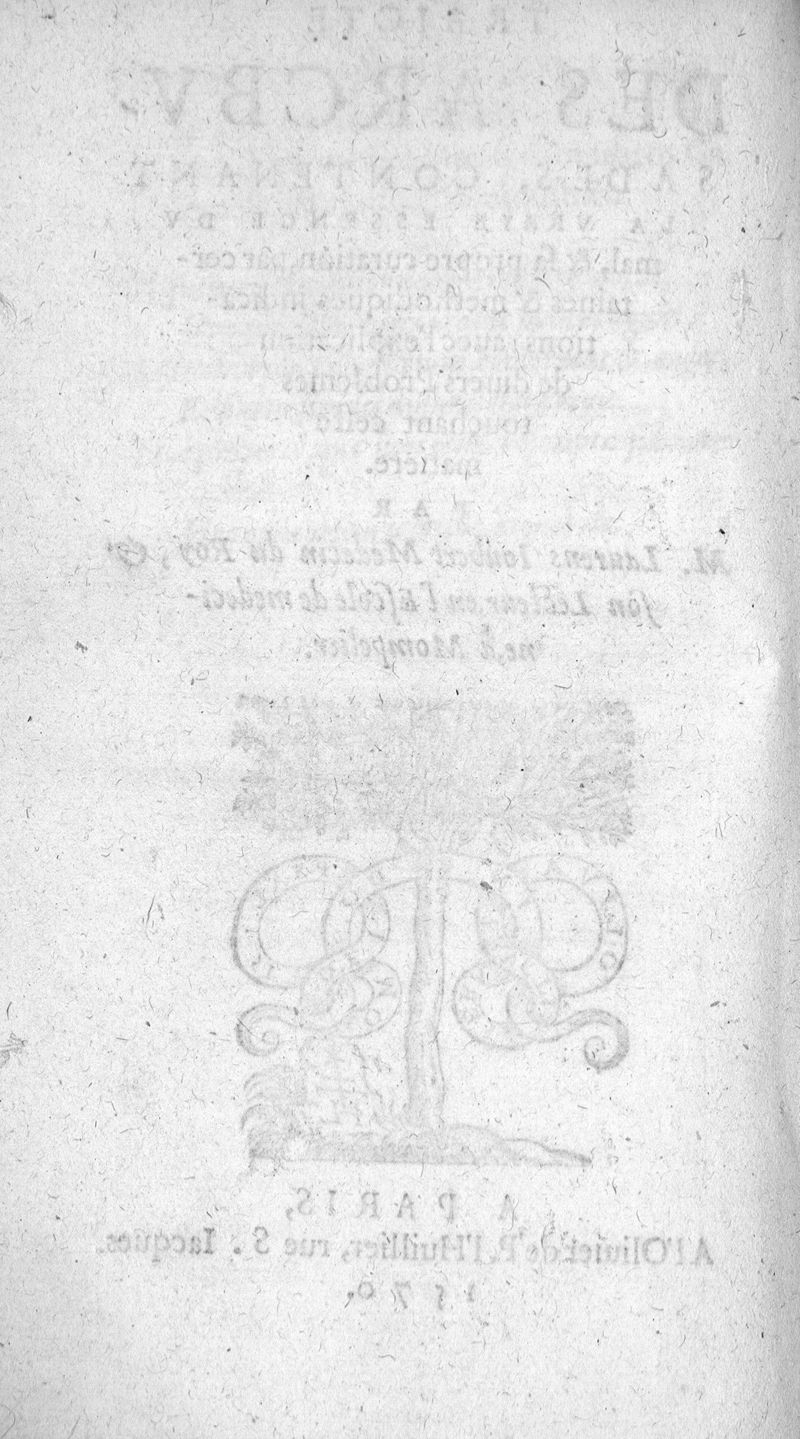 TREICTE
DES ARCBV-
SADES, CONTENANT
LA VRAYE ESSENCE DV
mal, & sa propre curation, par cer-
taines & methodiques indica-
tions: auec l'explication
de diuers Problemes
touchant ceste
matiere.
PAR
M. Laurens Ioubert Medecin du Roy, &
son Lecteur en l'Escole de medeci-
ne, à Mompelier.
A PARIS,
A l'Oliuier de P. l'Huillier, rue S. Iacques.
1570.